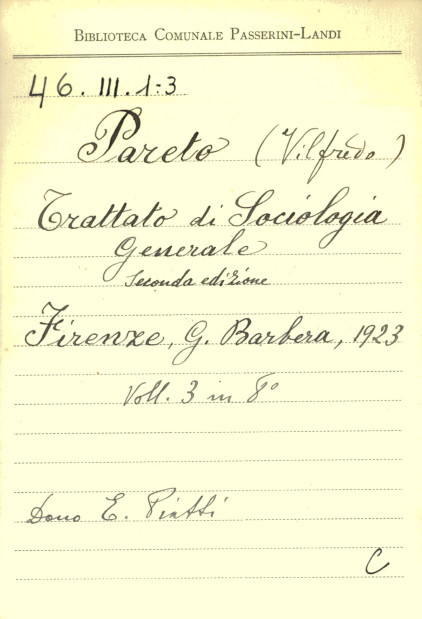 BIBLIOTECA COMUNALE PASSERINI-LANDI
46. III. 1-3
Pareto (Vilfredo)
Trattato di Sociologia
Generale
Seconda edizione
Firenze, G. Barbera, 1923
Voll. 3 in 8°
Dono E. Piatti
C